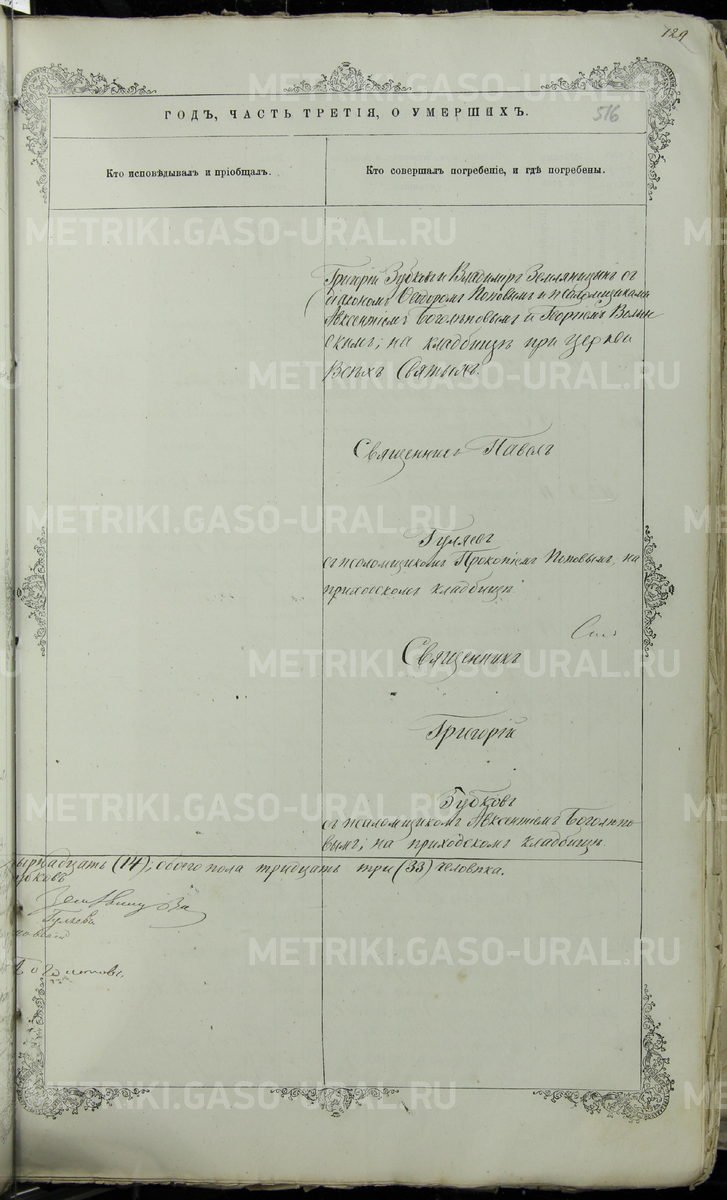 129
ГОДЪ, ЧАСТЬ ТРЕТІЯ, О УМЕРШИХЪ.
516
Кто исповѣдывалъ и пріобщалъ.
Кто совершалъ погребеніе, и гдѣ погребены.
Григорій Зубковъ и Владиміръ Земляницынъ съ
діакономъ Ѳедоромъ Поповымъ и псаломщиками
Авксентіемъ Боголѣповымъ и Георгіемъ Волын
скимъ; на кладбищѣ при церкви
Всѣхъ Святыхъ.
Священникъ Павелъ
Гуляевъ
съ псаломщикомъ Прокопіемъ Поповымъ, на
приходскомъ кладбищѣ
Священникъ
Григорій
Зубковъ
съ псаломщикомъ Авксентіемъ Боголѣпо
вымъ; на приходскомъ кладбищѣ.
ырнадцать (14); обоего пола тридцать три (33) человѣка.
убковъ
Гуляевъ
Боголѣповъ.
METRIKI.GASO-URAL.RU